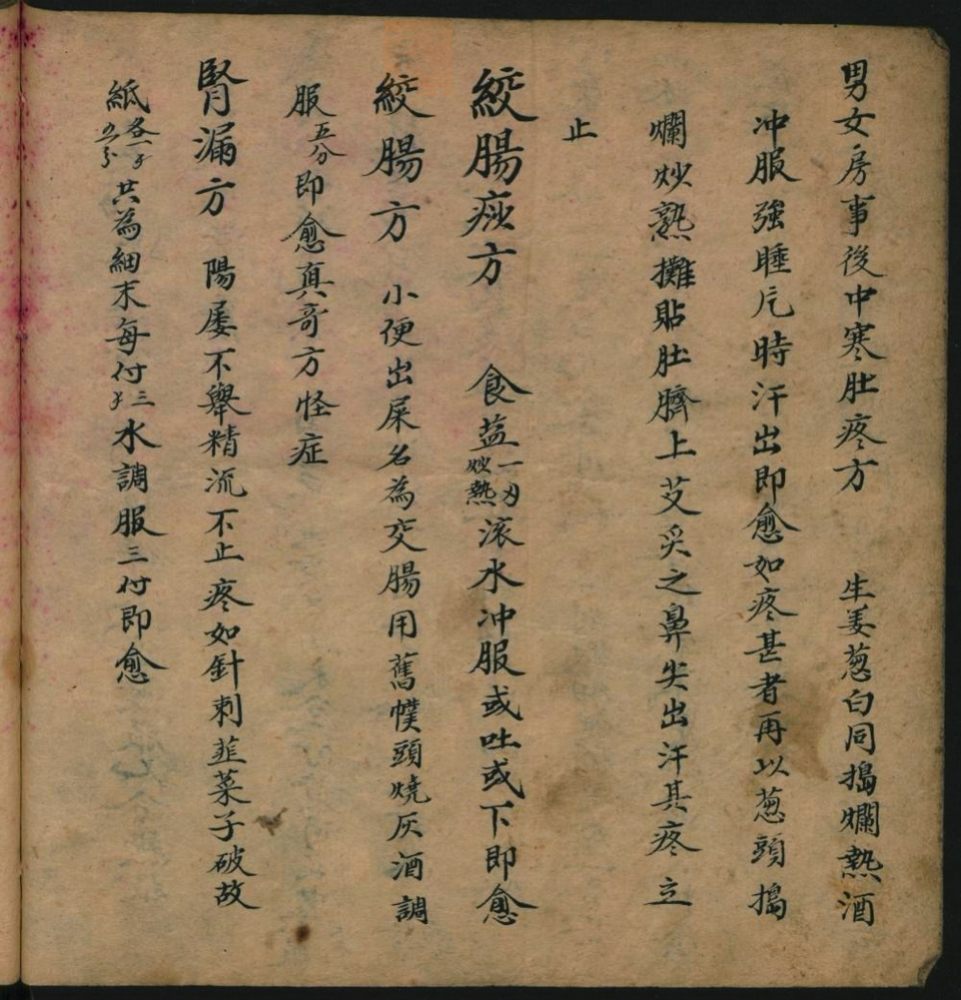 男女房事後中寒肚疼方 生姜葱白同搗爛熱酒
冲服強睡片時汗出即愈如疼甚者再以葱頭搗
爛炒熟攤貼肚臍上艾灸之鼻尖出汗其疼立
止
絞腸痧方 食盐一刄炒熱滚水冲服或吐或下即愈
絞腸方 小便出屎名為交腸用舊幞頭燒灰酒調
服五分即愈真奇方怪症
腎漏方 陽屡不舉精流不止疼如針刺韮菜子破故
紙各一共為細末每付三水調服三付即愈